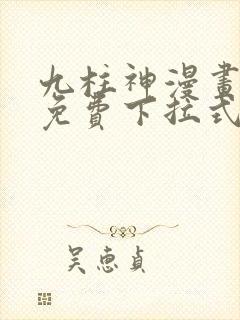 九柱神漫畫
免費下拉式
吳惠貞